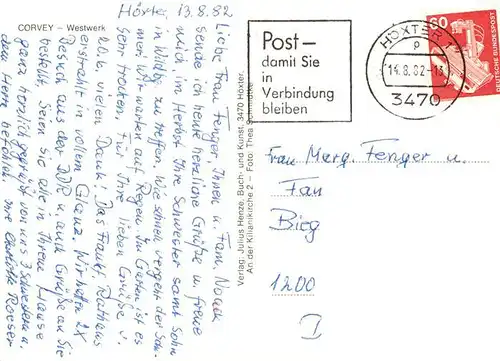 CORVEY – Westwerk
Höxter, 13.8.82
Liebe Frau Fenger Ihnen u. Fam. Noack
sende ich heute herzliche Grüße u. freue
mich im Herbst Ihre Schwester samt Sohn
in Willb. zu treffen. Wie schnell vergeht der Som-
mer! Wir warten auf Regen. Im Garten ist es
sehr trocken. Für Ihre lieben Grüße v.
vielen Dank! Das Frankf. Rathaus
erstrahlt in vollem Glanz. Wir hatten 2x
Besuch aus der DDR u. auch Grüße an Sie
bestellt. Seien Sie alle in Ihrem Hause
ganz herzlich gegrüßt von uns 3 Schwestern u.
dem Herrn befohlen. Ihre Roeser
Verlag: Julius Henze, Buch- und Kunst, 3470 Höxter,
An der Kilianikirche 2 – Foto: Thea
Post–
damit Sie
in
Verbindung
bleiben
HÖXTER 1
p
14.8.82-13
3470
60
DEUTSCHE BUNDESPOST
Frau Marg. Fenger u.
Fam
1200